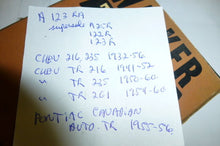 A 123 RA
supersede A25R
122R
123R
CHEV 216, 235 1932-56
CHEV TR 216 1941-52
" TR 235 1950-60
" TR 261 1954-60
PONTIAC CANADIAN
AUTO. TR 1955-56